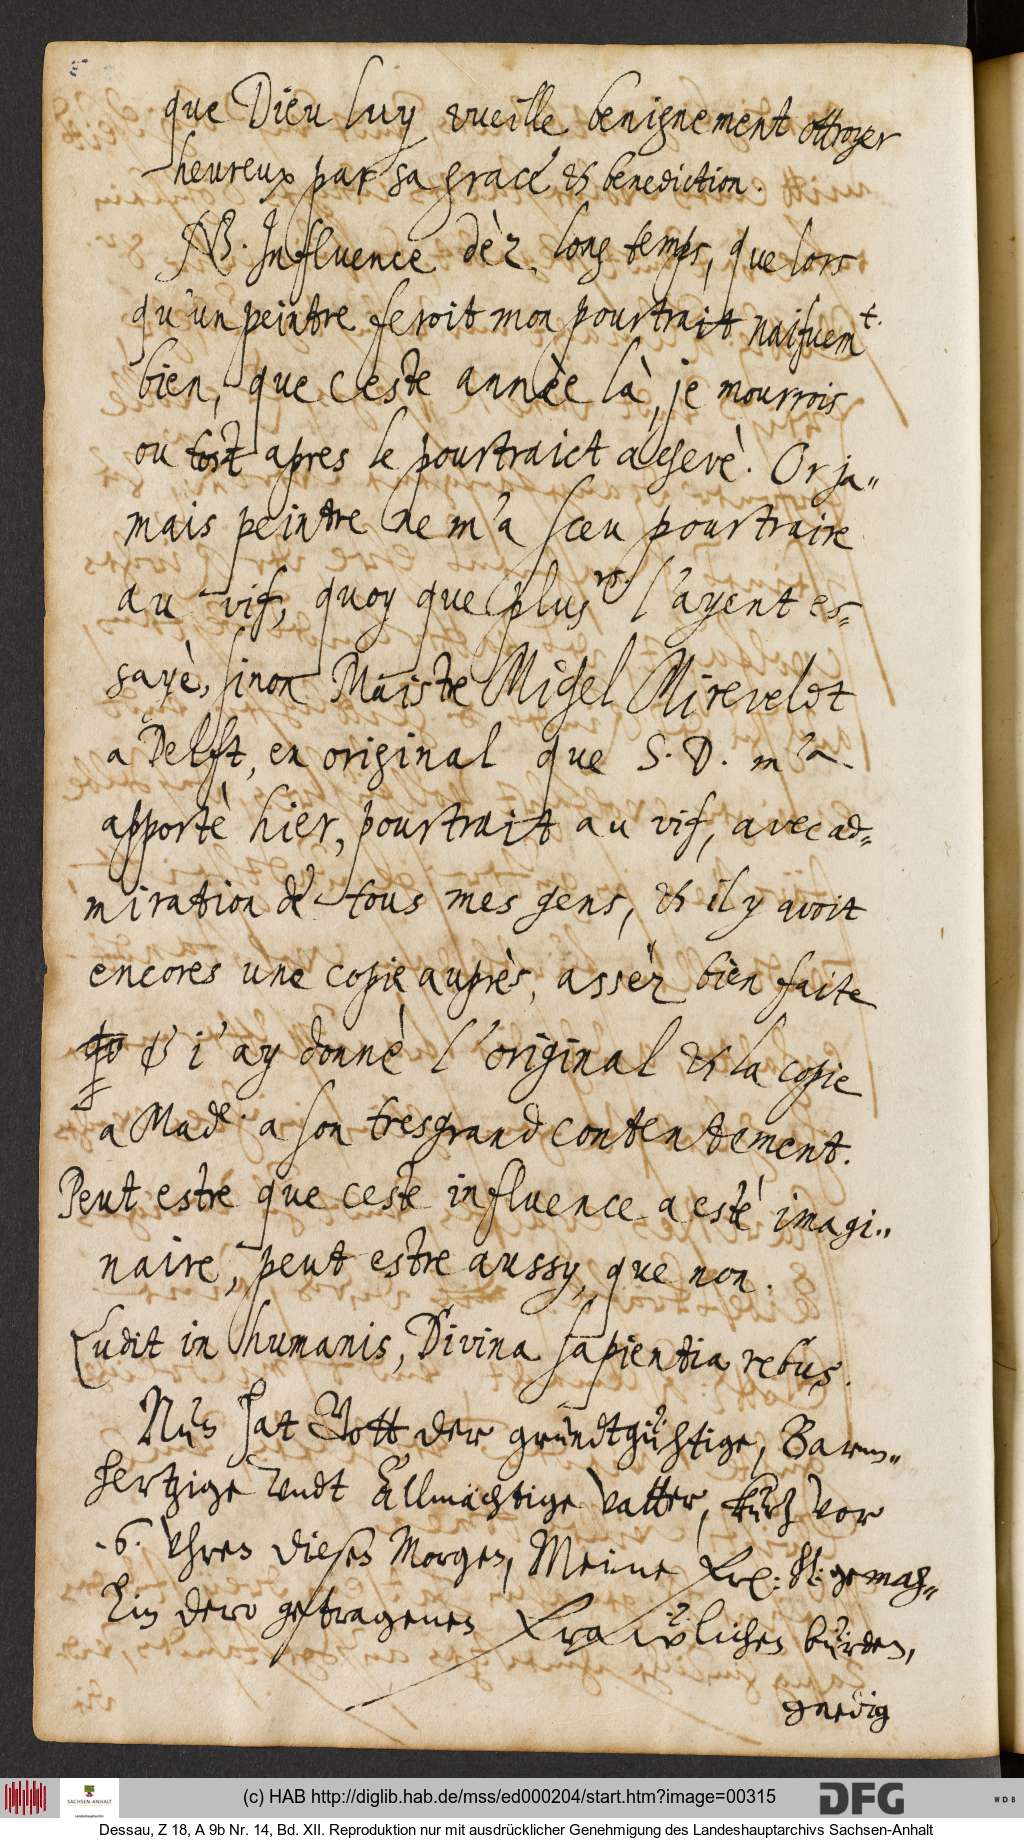 que Dieu luy vueille benignement ottroyer
heureux par sa grace et benediction.
NB. Influence dèz long temps, que lors
qu'un peintre feroit mon pourtrait naifuem.t
bien, que ceste annèe là, je mourrois
ou tost apres le pourtraict achevè. Or ja=
mais peintre ne m'a sceu pourtraire
au vif, quoy que plus.rs l'ayent es=
sayè, sinon Maistre Michel Mirevelot
a Delft, en original que S. D. m'a
apportè hier, pourtrait au vif, avec ad=
miration de tous mes gens, et il y avoit
encores une copie auprès, assèz bien faite
et i'ay donnè l'original et la copie
a Made. a son tresgrand contentement.
Peut estre que ceste influence a esté imagi=
naire, peut estre aussy, que non.
Ludit in humanis, Divina sapientia rebus.
Nun hat Gott der grundtgühtige, Barm=
hertzige undt Allmächtige Vatter, kurtz vor
.6. Uhren diesen Morgen, Meine frl: h: gemah=
lin dero getragenen Fraẅlichen bürden,
gnedig
(c) HAB http://diglib.hab.de/mss/ed000204/start.htm?image=00315
SACHSEN-ANHALT
DFG
WDB
Dessau, Z 18, A 9b Nr. 14, Bd. XII. Reproduktion nur mit ausdrücklicher Genehmigung des Landeshauptarchivs Sachsen-Anhalt